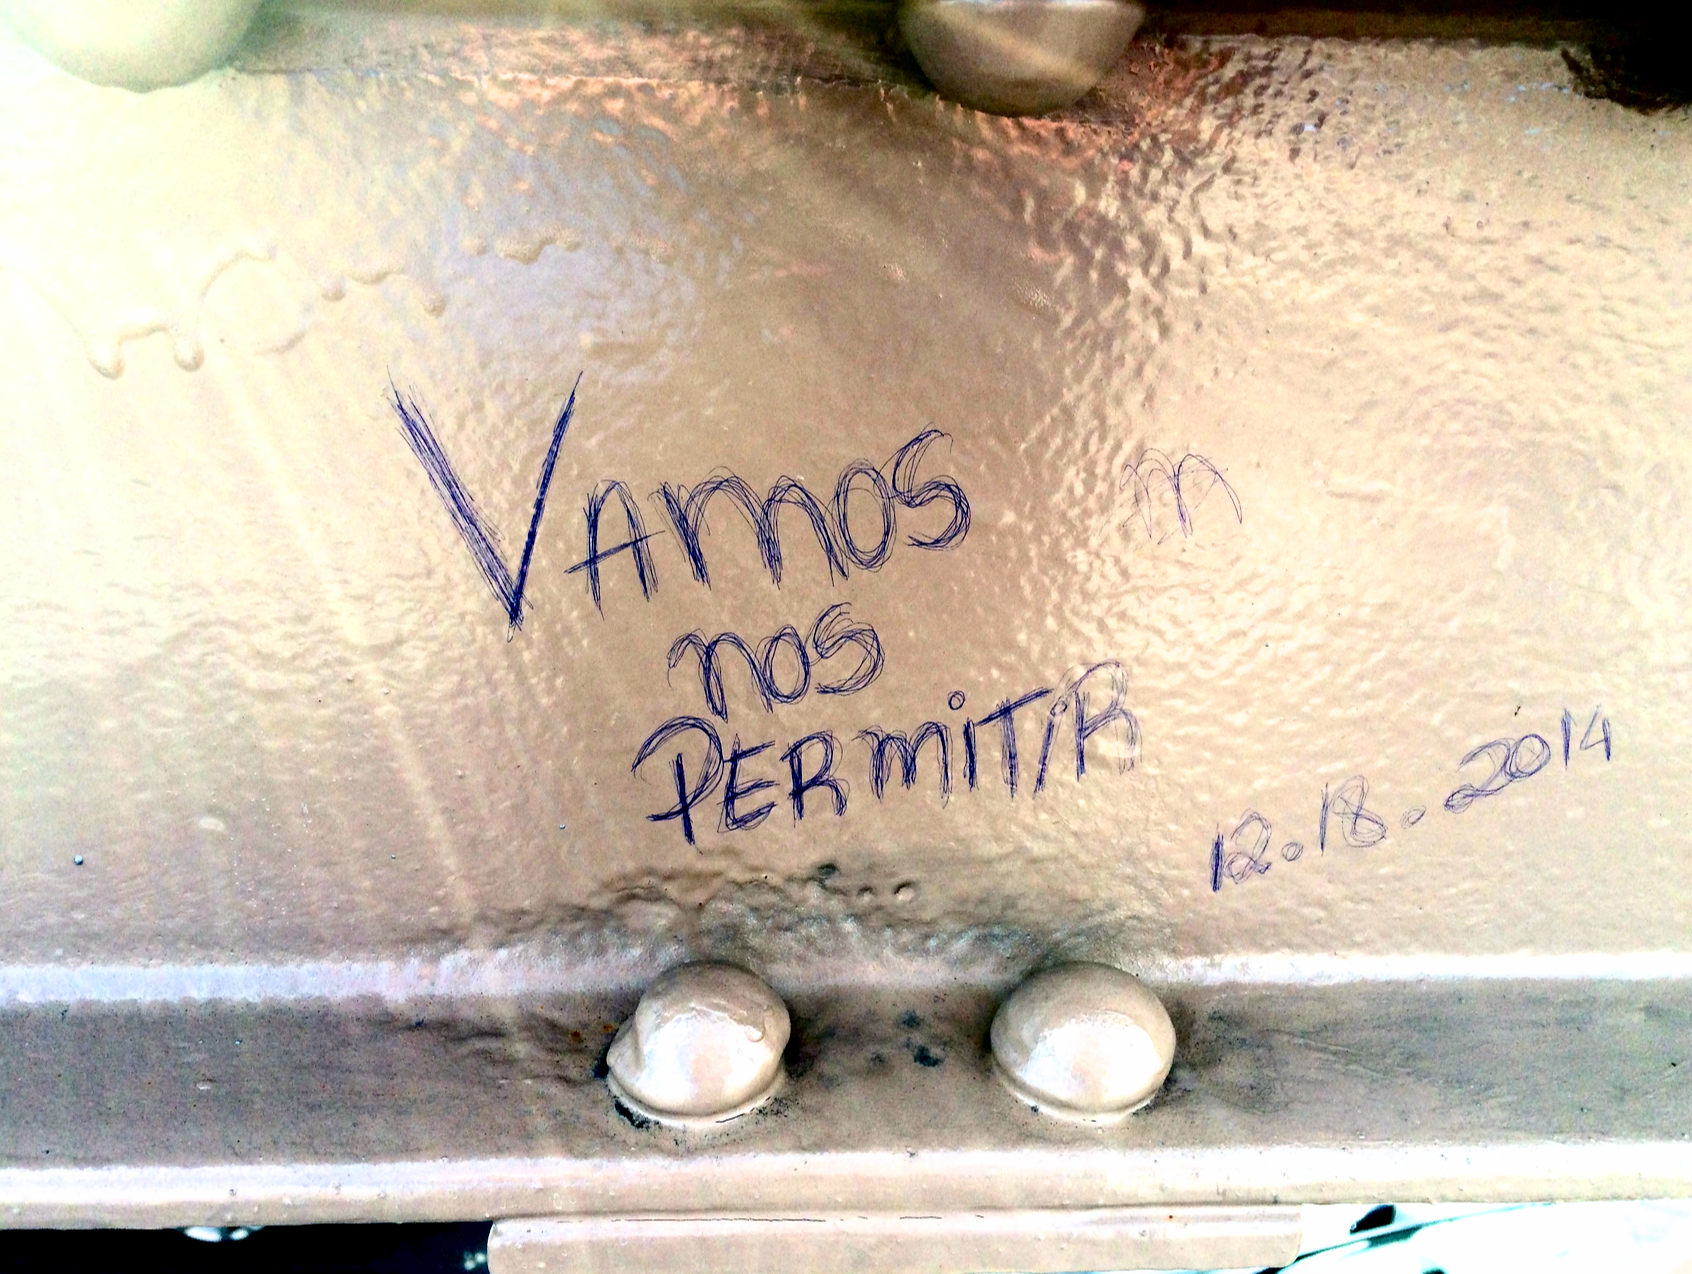 VAmos m
nos
PERmiTiR
12.18.2014